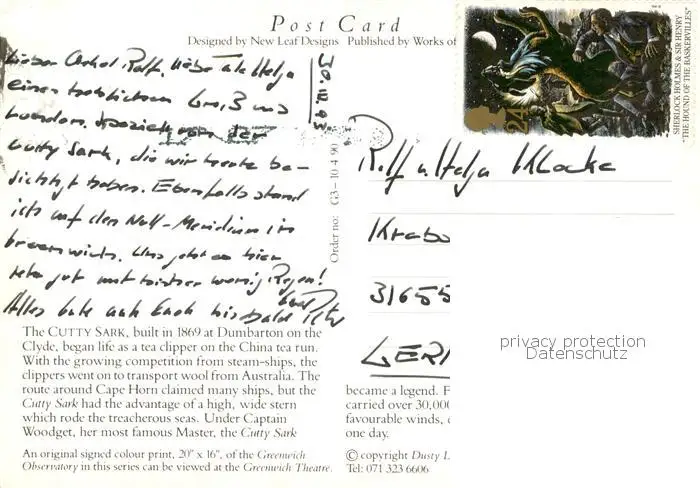 Post Card
Designed by New Leaf Designs Published by Works of
Lieber Onkel Rolf, liebe Tante Helga
einen herzlichen Gruß aus
London, speziell von der
Cutty Sark, die wir heute be-
sichtigt haben. Ebenfalls stand
ich auf den Null-Meridian in
Greenwich. Uns geht es hier
sehr gut mit bisher wenig Regen!
Alles Gute auch Euch bis bald Euer Peter
30.III.93
Order no: G3-10-4 90
24
SHERLOCK HOLMES & SIR HENRY
"THE HOUND OF THE BASKERVILLES"
Rolf u. Helga Klocke
31655
GER
privacy protection
Datenschutz
The CUTTY SARK, built in 1869 at Dumbarton on the
Clyde, began life as a tea clipper on the China tea run.
With the growing competition from steam-ships, the
clippers went on to transport wool from Australia. The
route around Cape Horn claimed many ships, but the
Cutty Sark had the advantage of a high, wide stern
which rode the treacherous seas. Under Captain
Woodget, her most famous Master, the Cutty Sark
became a legend. F
carried over 30,000
favourable winds,
one day.
An original signed colour print, 20" x 16", of the Greenwich
Observatory in this series can be viewed at the Greenwich Theatre.
© copyright Dusty L
Tel: 071 323 6606